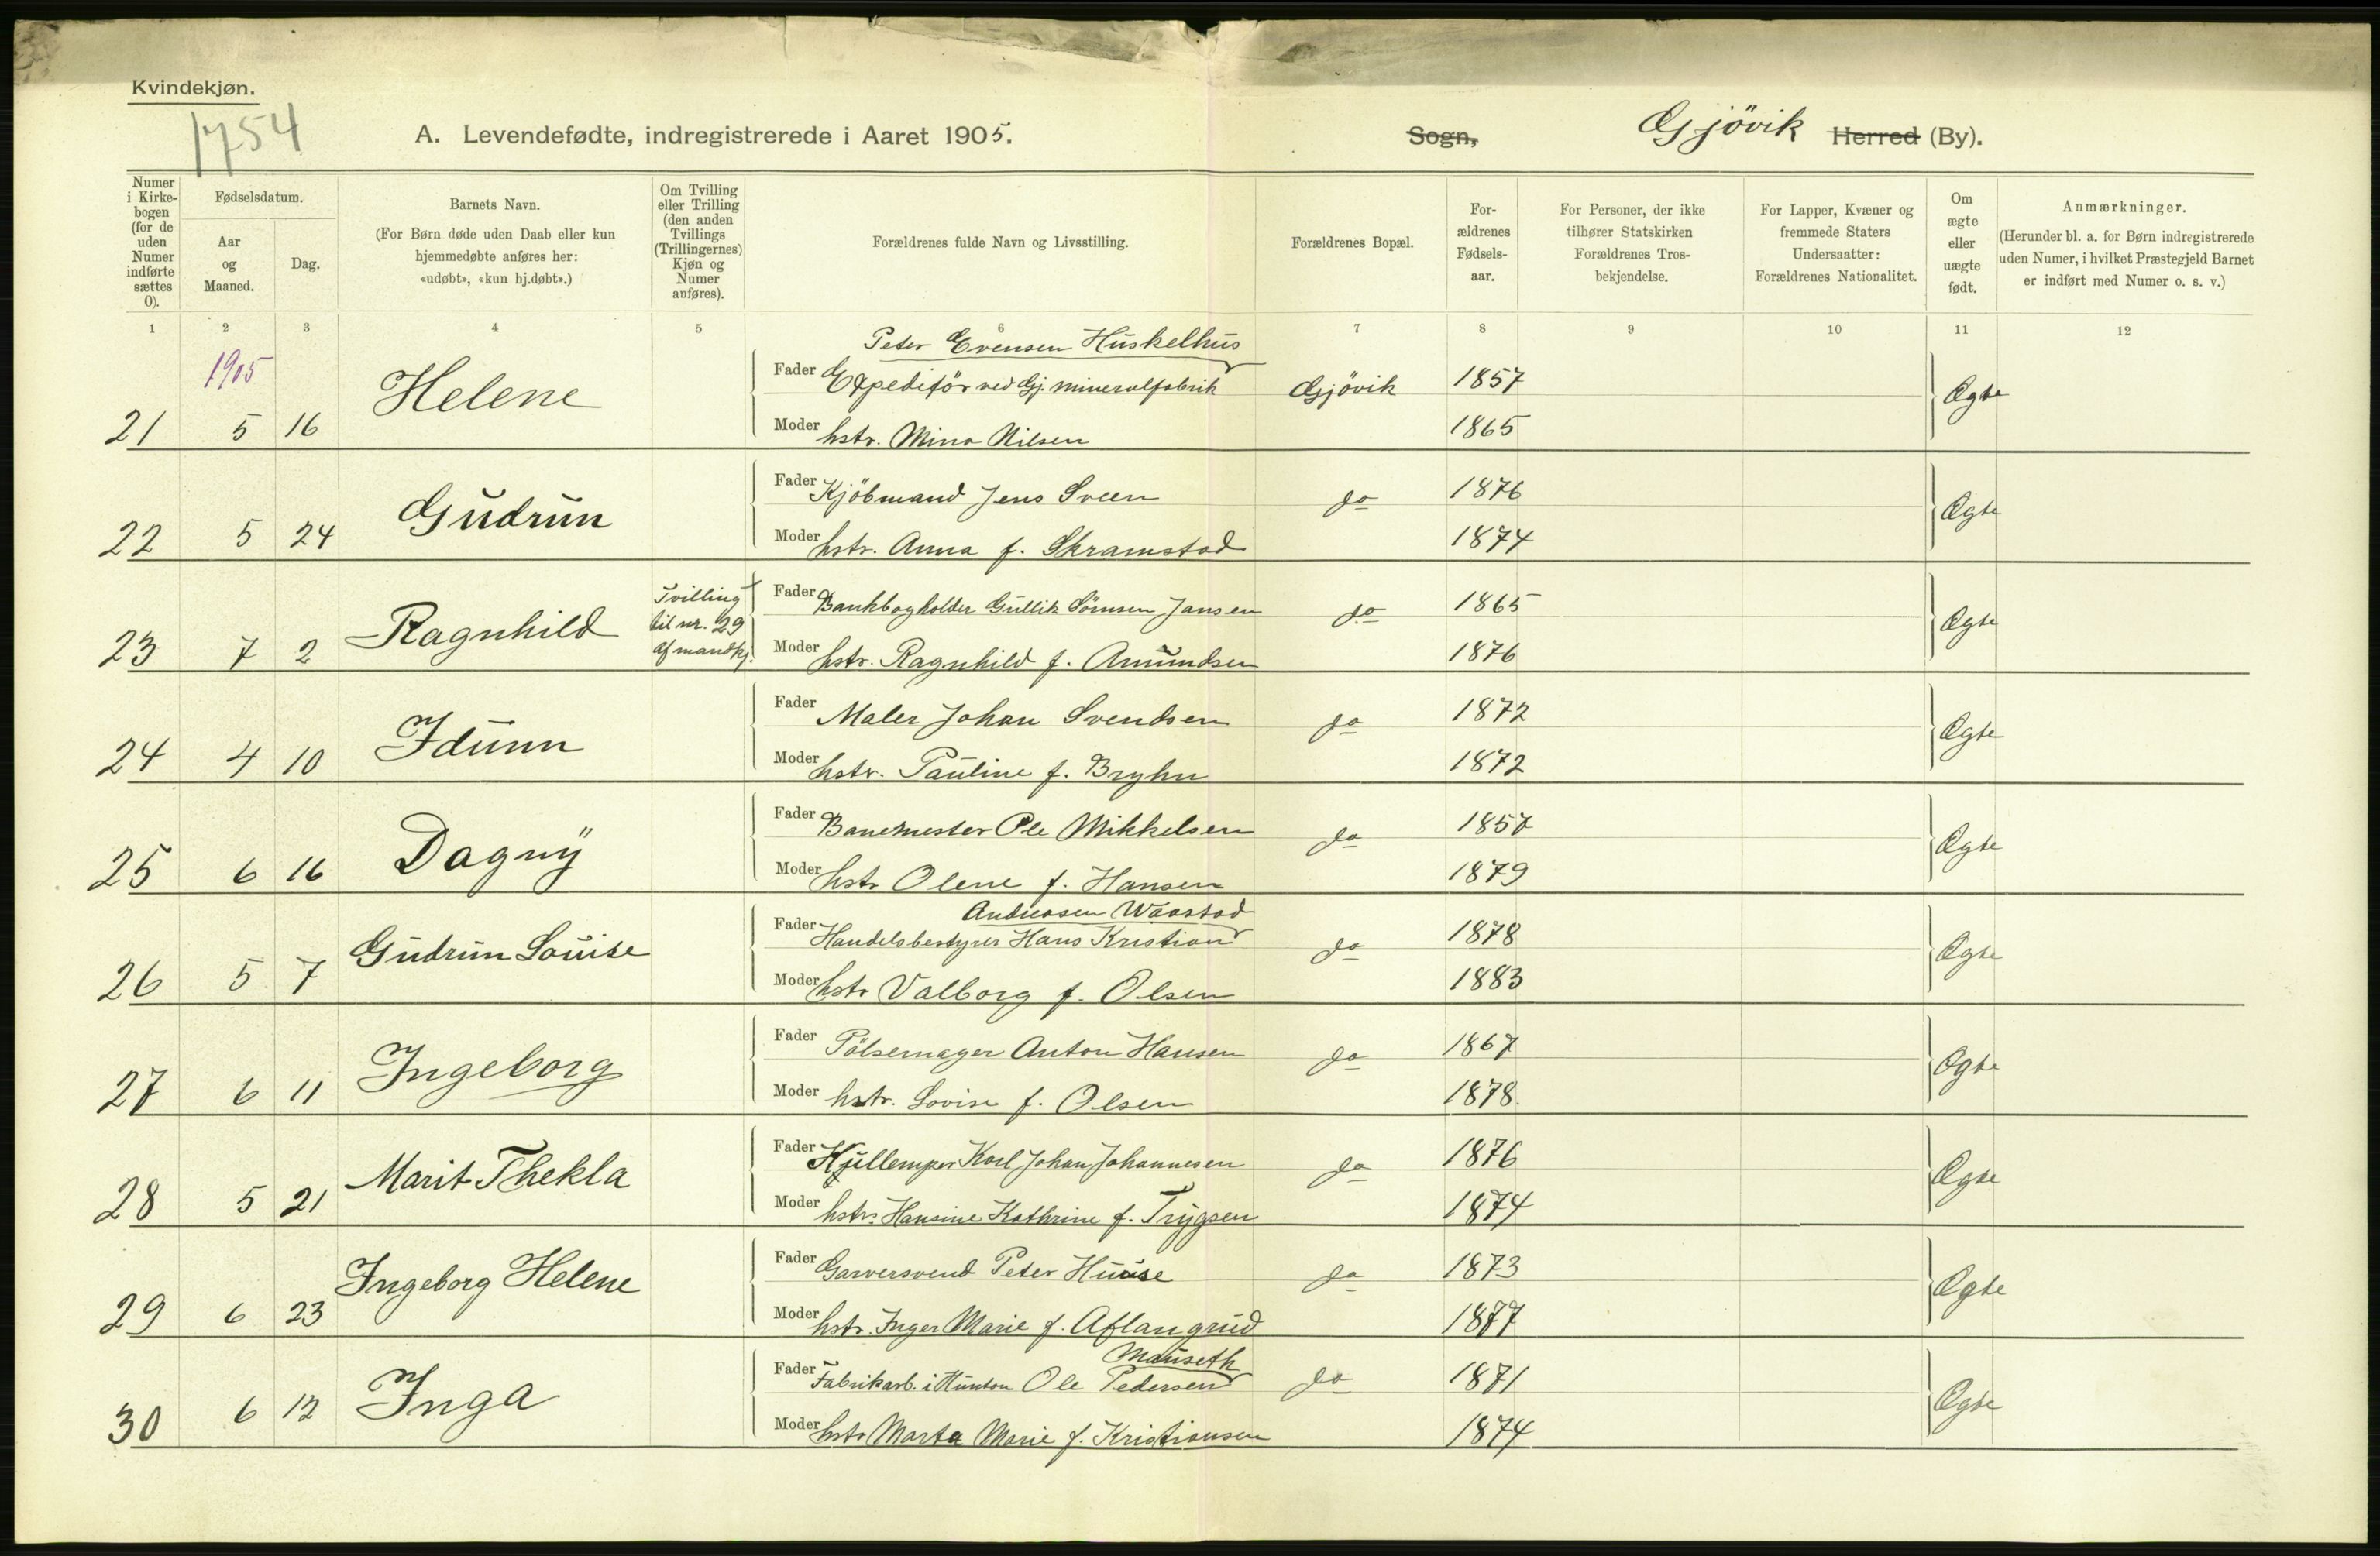 Kvindekjøn.
1754
A. Levendefødte, indregistrerede i Aaret 1905.
Sogn, Gjövik Herred (By).
Numer i Kirkebogen (for de uden Numer indførte sættes 0).
Fødselsdatum.
Aar og Maaned.
Dag.
Barnets Navn.
(For Børn døde uden Daab eller kun hjemmedøbte anføres her: «udøbt», «kun hj.døbt».)
Om Tvilling eller Trilling (den anden Tvillings (Trillingernes) Kjøn og Numer anføres).
Forældrenes fulde Navn og Livsstilling.
Forældrenes Bopæl.
For-ældrenes Fødsels-aar.
For Personer, der ikke tilhører Statskirken Forældrenes Tros-bekjendelse.
For Lapper, Kvæner og fremmede Staters Undersaatter: Forældrenes Nationalitet.
Om ægte eller uægte født.
Anmærkninger.
(Herunder bl. a. for Børn indregistrerede uden Numer, i hvilket Præstegjeld Barnet er indført med Numer o. s. v.)
1 2 3 4 5 6 7 8 9 10 11 12
1905
Peter Evensen Huskelhus
21 5 16 Helene Fader Expeditör ved Gj. mineralfabrik Gjövik 1857 Ægte
Moder hstr. Mina Nilsen 1865
22 5 24 Gudrun Fader Kjöbmand Jens Sveen do 1876 Ægte
Moder hstr. Anna f. Skramstad 1874
23 7 2 Ragnhild Tvilling til nr. 29 af mandkj. Fader Bankbogholder Gullik Jansen do 1865 Ægte
Moder hstr. Ragnhild f. Amundsen 1876
24 4 10 Idunn Fader Maler Johan Svendsen do 1872 Ægte
Moder hstr. Pauline f. Bryhn 1872
25 6 16 Dagny Fader Banemester Ole Mikkelsen do 1857 Ægte
Moder hstr Olene f. Hansen 1879
Andreasen Waastad
26 5 7 Gudrun Louise Fader Handelsbestyrer Hans Kristian do 1878 Ægte
Moder hstr Valborg f. Olsen 1883
27 6 11 Ingeborg Fader Pölsemager Anton Hansen do 1867 Ægte
Moder hstr. Lovise f. Olsen 1878.
28 5 21 Marit Thekla Fader Karl Johan Johannesen do 1876 Ægte
Moder hstr. Hansine Kathrine f. Trygsen 1874
29 6 23 Ingeborg Helene Fader Garversvend Peter Huuse do 1873 Ægte
Moder hstr. Inger Marie f. Aflangrud 1877
Mauseth
30 6 12 Inga Fader Fabrikarb. i Hunton Ole Pedersen do 1871 Ægte
Moder hstr Marta Marie f. Kristiansen 1874